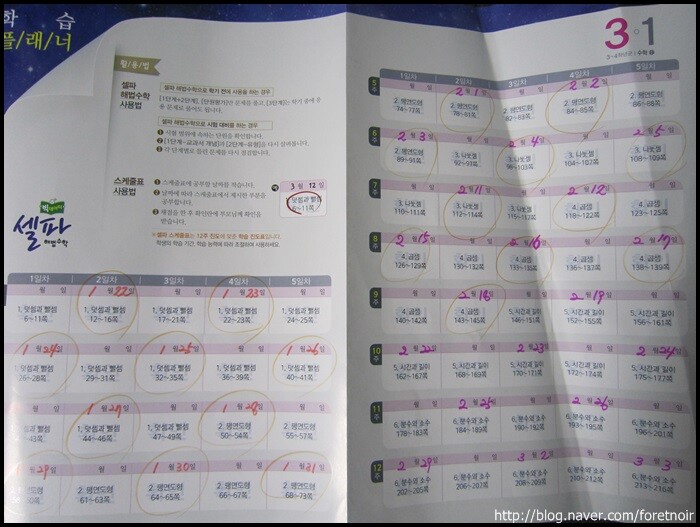 학 습
플/래/너
활/용/법
셀파
해법수학
사용법
셀파 해법수학으로 학기 전에 사용을 하는 경우
셀파 해법수학으로 시험 대비를 하는 경우
❶ 시험 범위에 속하는 단원을 확인합니다.
스케줄표
사용법
❶ 스케줄표에 공부할 날짜를 적습니다.
❷ 날짜에 따라 스케줄표에서 제시한 부분을
공부합니다.
❸ 채점을 한 후 확인란에 부모님께 확인을
받습니다.
3 월 12 일
1. 덧셈과 뺄셈
6~11쪽
셀파
해법수학
1일차 2일차 3일차 4일차 5일차
월 일 1 월 22 일 월 일 1 월 23 일 월 일
1. 덧셈과 뺄셈 1. 덧셈과 뺄셈 1. 덧셈과 뺄셈 1. 덧셈과 뺄셈 1. 덧셈과 뺄셈
6~11쪽 12~16쪽 17~21쪽 22~23쪽 24~25쪽
1 월 24 일 월 일 1 월 25 일 월 일 1 월 26 일
1. 덧셈과 뺄셈 1. 덧셈과 뺄셈 1. 덧셈과 뺄셈 1. 덧셈과 뺄셈 1. 덧셈과 뺄셈
26~28쪽 29~31쪽 32~35쪽 36~39쪽 40~41쪽
월 일 1 월 27 일 월 일 1 월 28 일 월 일
1. 덧셈과 뺄셈 1. 덧셈과 뺄셈 2. 평면도형 2. 평면도형
44~46쪽 47~49쪽 50~54쪽 55~57쪽
월 29 일 월 일 1 월 30 일 월 일 1 월 31 일
2. 평면도형 2. 평면도형 2. 평면도형 2. 평면도형
61~63쪽 64~65쪽 66~67쪽 68~73쪽
3·1
1일차 2일차 3일차 4일차 5일차
5주 월 일 2 월 1 일 월 일 2 월 2 일 월 일
2. 평면도형 2. 평면도형 2. 평면도형 2. 평면도형 2. 평면도형
74~77쪽 78~81쪽 82~83쪽 84~85쪽 86~88쪽
6주 2 월 3 일 월 일 2 월 4 일 월 일 2 월 5 일
2. 평면도형 3. 나눗셈 3. 나눗셈 3. 나눗셈 3. 나눗셈
89~91쪽 92~97쪽 98~103쪽 104~107쪽 108~109쪽
7주 월 일 2 월 11 일 월 일 2 월 12 일 월 일
3. 나눗셈 3. 나눗셈 3. 나눗셈 4. 곱셈 4. 곱셈
110~111쪽 112~114쪽 115~117쪽 118~122쪽 123~125쪽
8주 2 월 15 일 월 일 2 월 16 일 월 일 2 월 17 일
4. 곱셈 4. 곱셈 4. 곱셈 4. 곱셈 4. 곱셈
126~129쪽 130~132쪽 133~135쪽 136~137쪽 138~139쪽
9주 월 일 2 월 18 일 월 일 2 월 19 일 월 일
4. 곱셈 4. 곱셈 5. 시간과 길이 5. 시간과 길이 5. 시간과 길이
140~142쪽 143~145쪽 146~151쪽 152~155쪽 156~161쪽
10주 2 월 22 일 월 일 2 월 23 일 월 일 2 월 24 일
5. 시간과 길이 5. 시간과 길이 5. 시간과 길이 5. 시간과 길이 5. 시간과 길이
162~167쪽 168~169쪽 170~171쪽 172~174쪽 175~177쪽
11주 월 일 2 월 25 일 월 일 2 월 26 일 월 일
6. 분수와 소수 6. 분수와 소수 6. 분수와 소수 6. 분수와 소수 6. 분수와 소수
178~183쪽 184~189쪽 190~192쪽 193~195쪽 196~201쪽
12주 2 월 29 일 월 일 3 월 2 일 월 일 3 월 3 일
6. 분수와 소수 6. 분수와 소수 6. 분수와 소수 6. 분수와 소수 6. 분수와 소수
202~205쪽 206~207쪽 208~209쪽 210~212쪽 213~216쪽
http://blog.naver.com/foretnoir